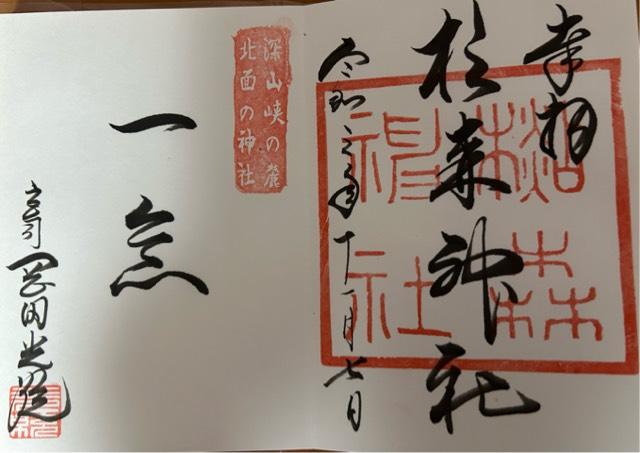 奉拝
松森神社
令和三年十一月七日
松森
神社
深山峡の麓
北面の神社
一念
宮司 岡田光